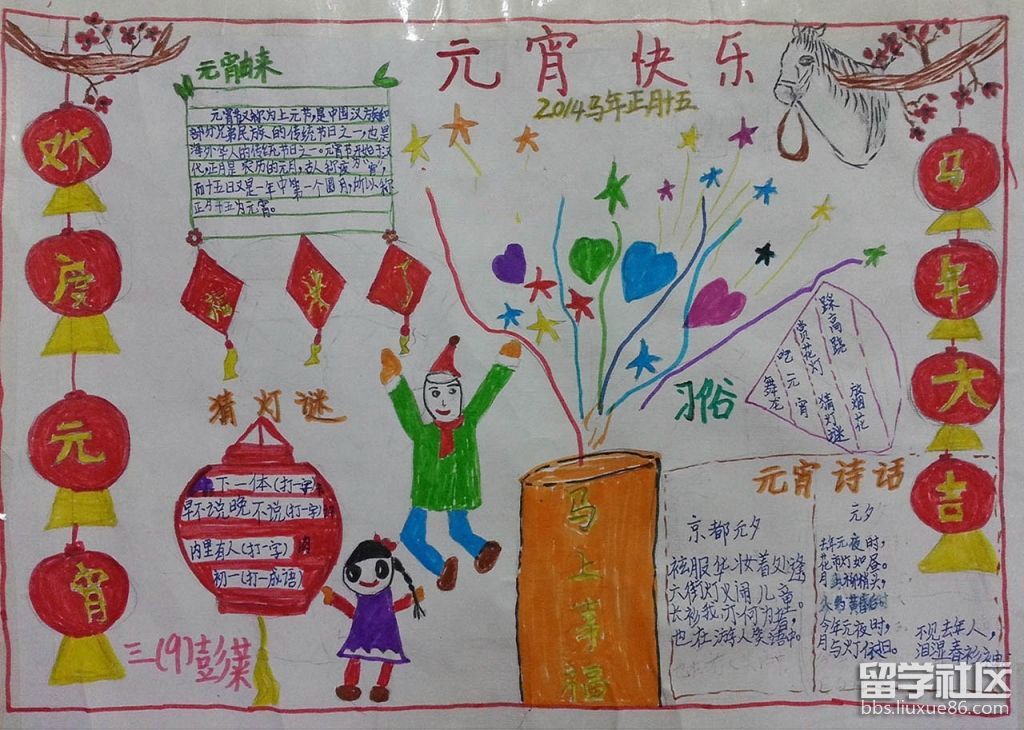 元宵快乐
2014马年正月十五
元宵由来
元宵又称为上元节,是中国汉族和
部分兄弟民族的传统节日之一,也是
海外华人的传统节日之一。元宵节形始于汉
代,正月是农历的元月,古人称夜为"宵",
而十五日又是一年中第一个圆月,所以称
正月十五为元宵。
欢
度
元
宵
福
来
了
马
年
大
吉
猜灯谜
下一体(打一字)
早不说晚不说(打一字)
内里有人(打一字)
初一(打一成语)
三(9)彭菜
习俗
踩高跷
赏花灯
吃元宵
舞龙
猜灯谜
放烟花
马上幸福
元宵诗话
京都元夕
袨服华妆着处逢
六街灯火闹儿童。
长衫我亦何为者,
也在游人笑语中。
元夕
去年元夜时,
花市灯如昼。
月上柳梢头,
人约黄昏后
今年元夜时,
月与灯依旧。
不见去年人,
泪湿春衫袖
留学社区
bbs.liuxue86.com